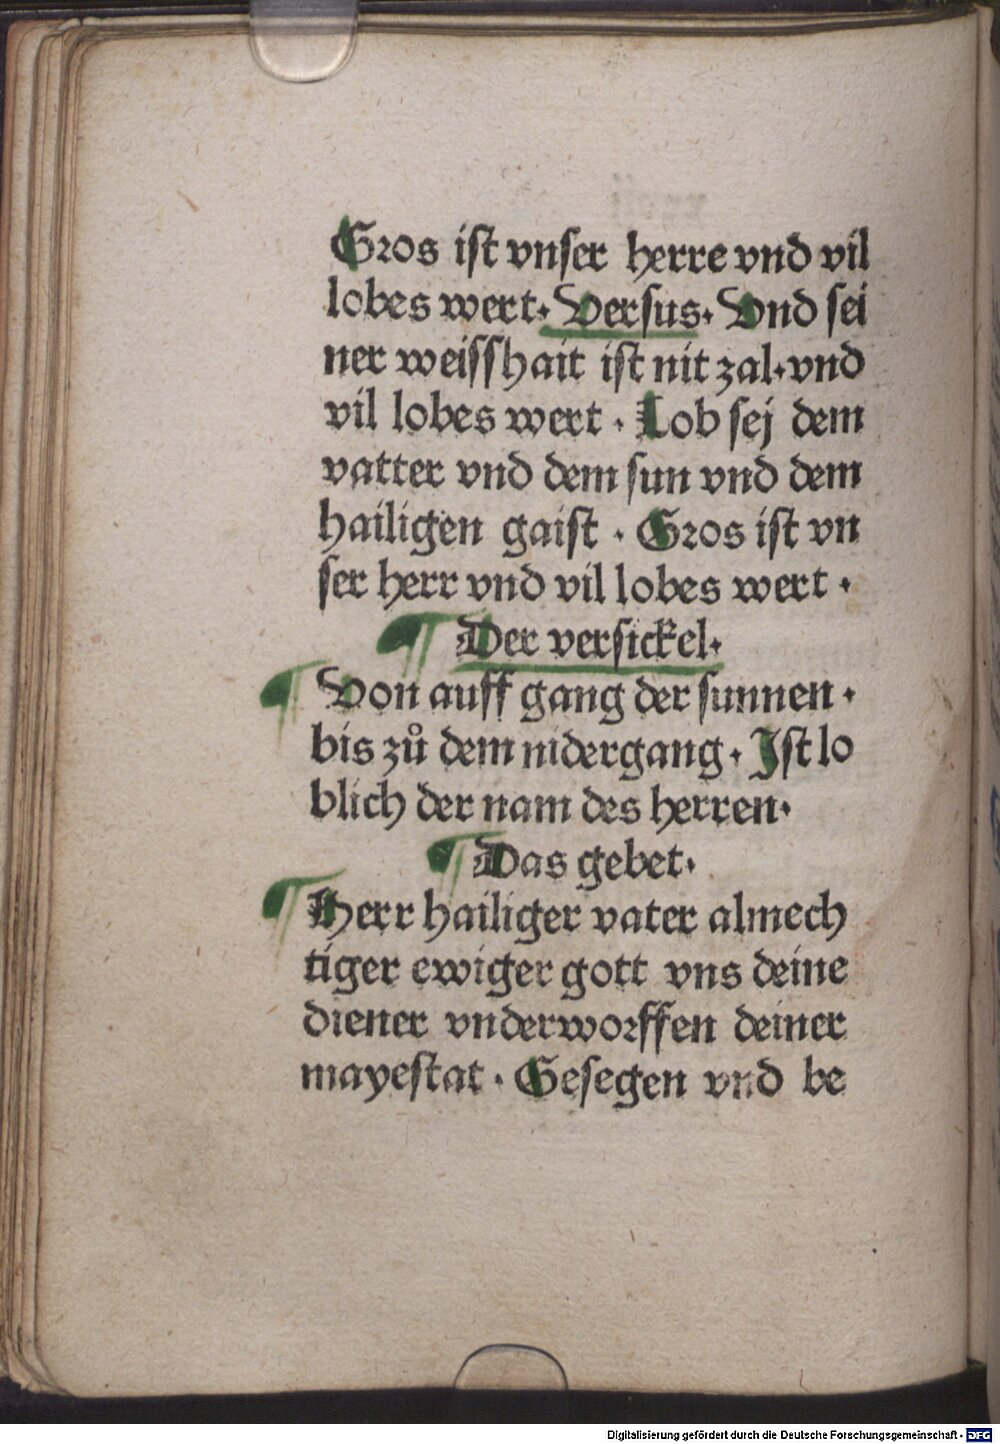 Gros iſt vnſer herre vnd vil
lobes wert· Verſus· Vnd ſei
ner weiſſhait iſt nit zal·vnd
vil lobes wert · Lob ſej dem
vatter vnd dem ſun vnd dem
hailigen gaiſt · Gros iſt vn
ſer herr vnd vil lobes wert ·
¶ Der verſickel·
¶ Von auff gang der ſunnen ·
bis zů dem nidergang · Jſt lo
blich der nam des herren·
¶ Das gebet·
¶ Herr hailiger vater almech
tiger ewiger gott vns deine
diener vnderworffen deiner
mayeſtat · Geſegen vnd be
Digitalisierung gefördert durch die Deutsche Forschungsgemeinschaft - DFG